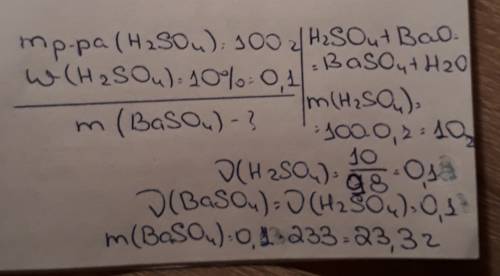 mр-ра(H2SO4): 100г
W(H2SO4): 10% = 0,1
m(BaSO4) - ?
H2SO4 + BaO =
= BaSO4 + H2O
m(H2SO4) =
= 100·0,1 = 10г
ν(H2SO4) = 10/98 = 0,1
ν(BaSO4) = ν(H2SO4) = 0,1
m(BaSO4) = 0,1·233 = 23,3г